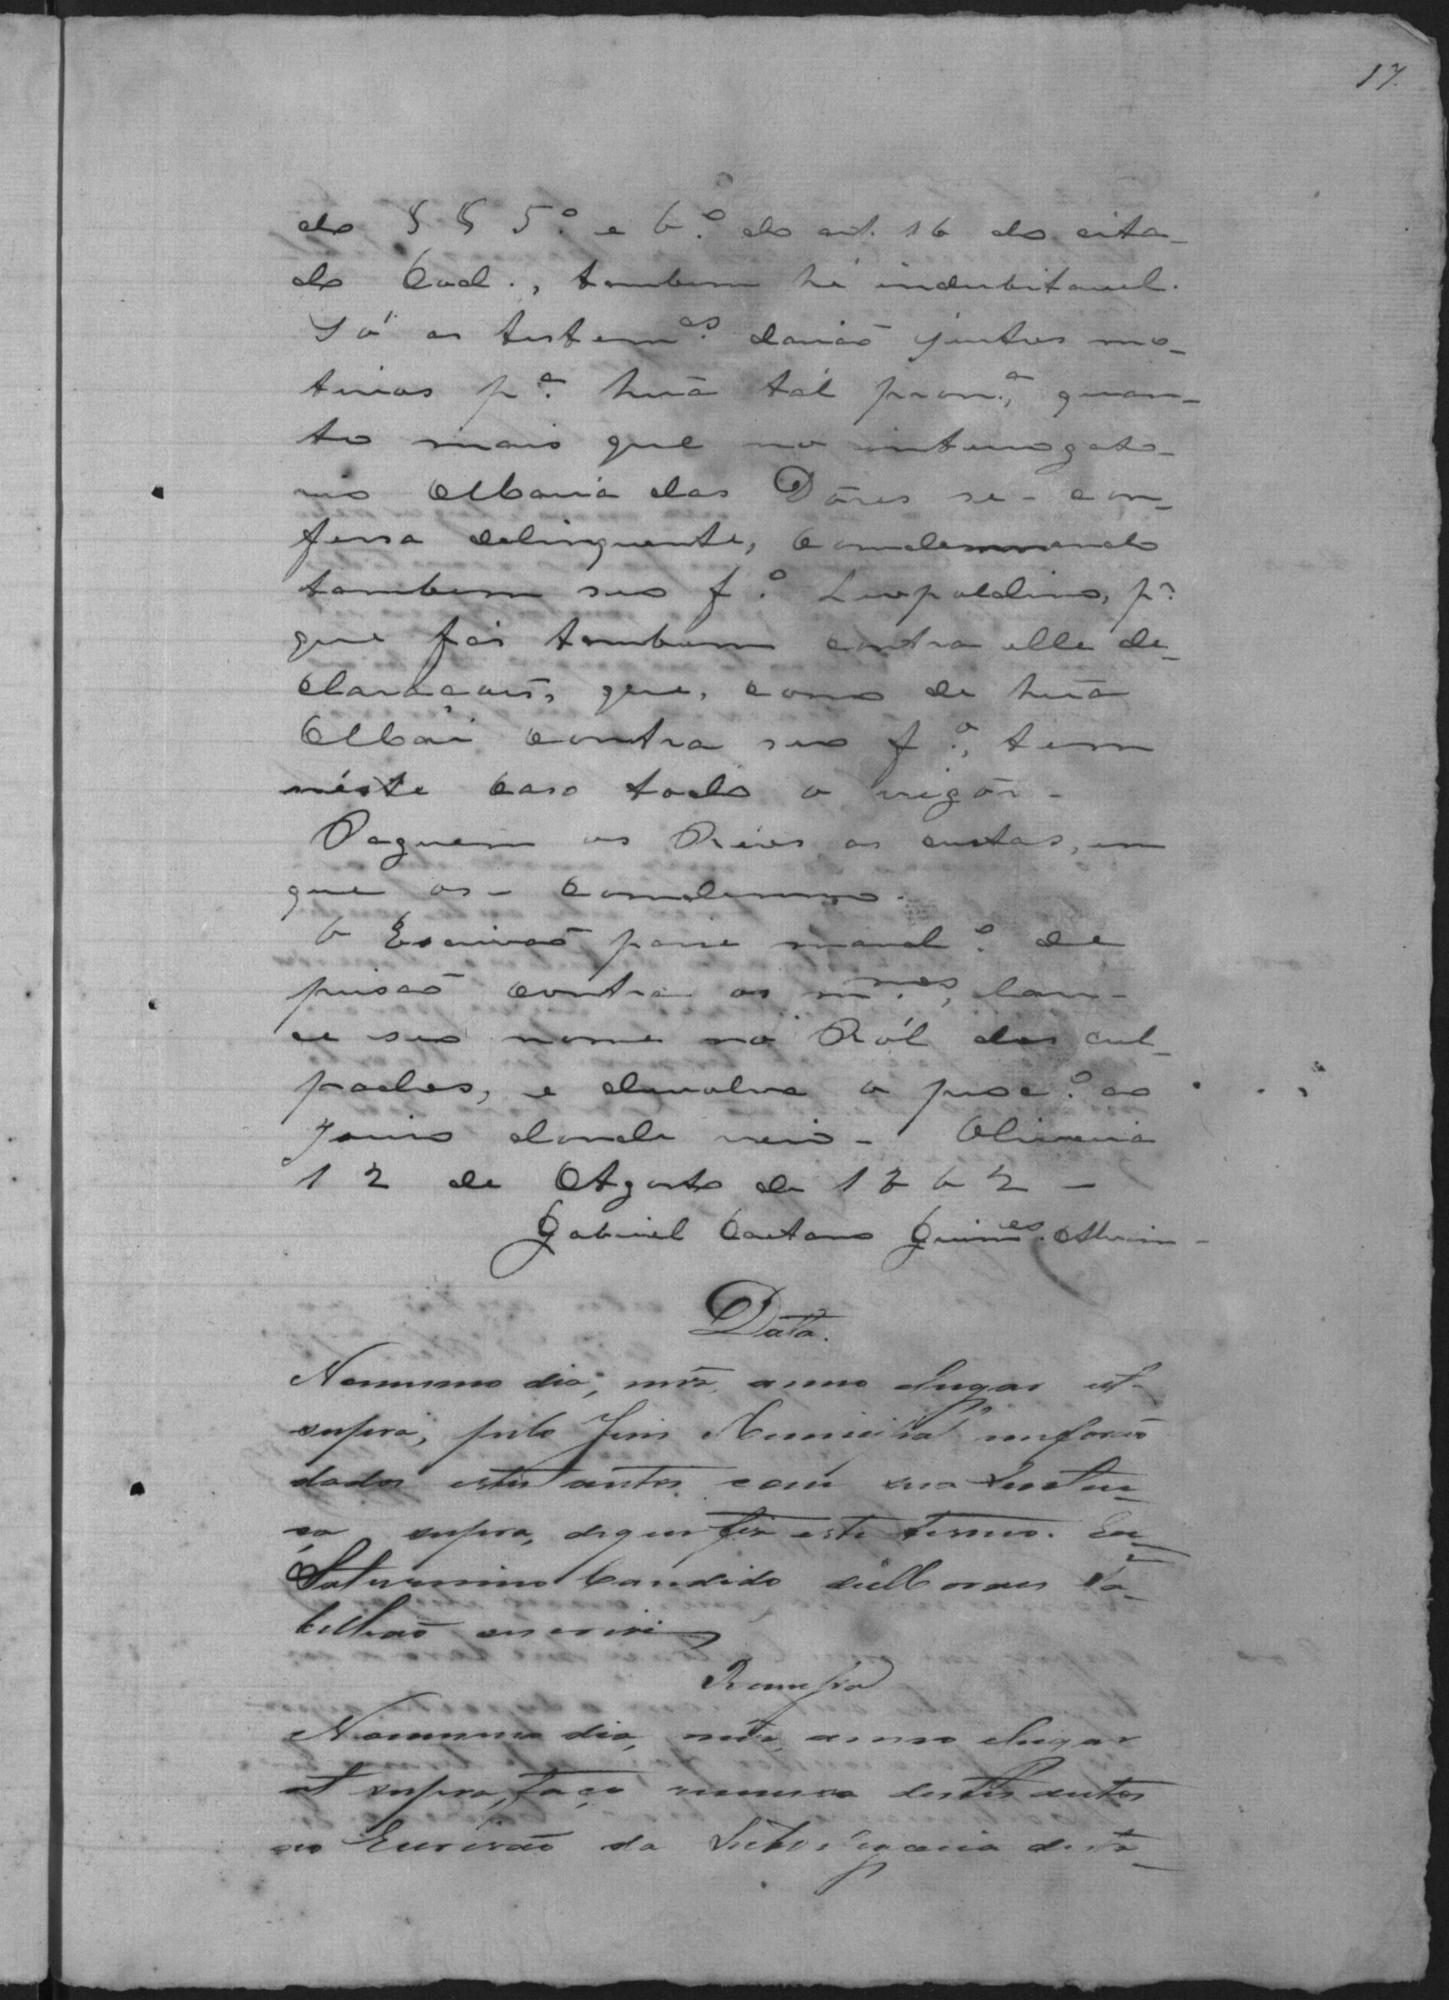 17.
do §§ 5.º e 6.º do art. 16 do cita-
do Cod., tambem hé indubitavel.
Só as testem.as darião justos mo-
tivos p.a huã tál pron.a, quan-
to mais que no interrogato-
rio Maria das Dôres se-con-
fessa delinquente, condemnando
tambem seo f.º Leopoldino, p.r
que fás tambem contra elle de-
claraçoẽs, que, como de huã
Mãi contra seo f.º, tem
néste caso todo o vigôr-
Paguem os Réos as custas, em
que os-condemno.
O Escrivaõ passe mand.º de
prisaõ contra os m.mos, lan-
ce seo nome no Ról dos cul-
pados, e devolva o proc.º ao
Juiso donde veio- Oliveira
12 de Agosto de 1862-
Gabriel Caetano Guim.es Alvim-
Data.
Nomesmo dia, mês, anno elugar ut-
supra, pelo Juis Municipal meforão
dados estes autos com sua Senten-
ça supra, dequefiz este termo. Eu
Saturnino Candido deMoraes Ta-
bellião escrevi
Remessa
Nomesmo dia, mês, anno elugar
ut supra, faço remessa destes autos
ao Escrivão da Subdelegacia desta-